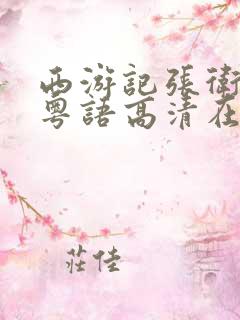 西游記張衛
粵語高清在
莊佳